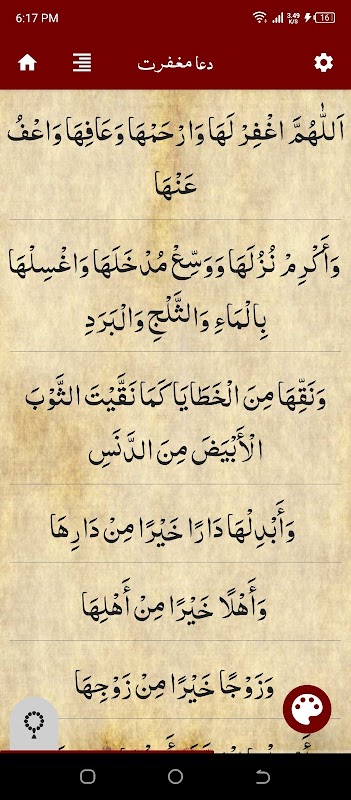 6:17 PM 3.49 K/S 16
دعا مغفرت
اَللّٰهُمَّ اغْفِرْ لَهَا وَارْحَمْهَا وَعَافِهَا وَاعْفُ
عَنْهَا
وَأَكْرِمْ نُزُلَهَا وَوَسِّعْ مُدْخَلَهَا وَاغْسِلْهَا
بِالْمَاءِ وَالثَّلْجِ وَالْبَرَدِ
وَنَقِّهَا مِنَ الْخَطَايَا كَمَا نَقَّيْتَ الثَّوْبَ
الْأَبْيَضَ مِنَ الدَّنَسِ
وَأَبْدِلْهَا دَارًا خَيْرًا مِنْ دَارِهَا
وَأَهْلًا خَيْرًا مِنْ أَهْلِهَا
وَزَوْجًا خَيْرًا مِنْ زَوْجِهَا